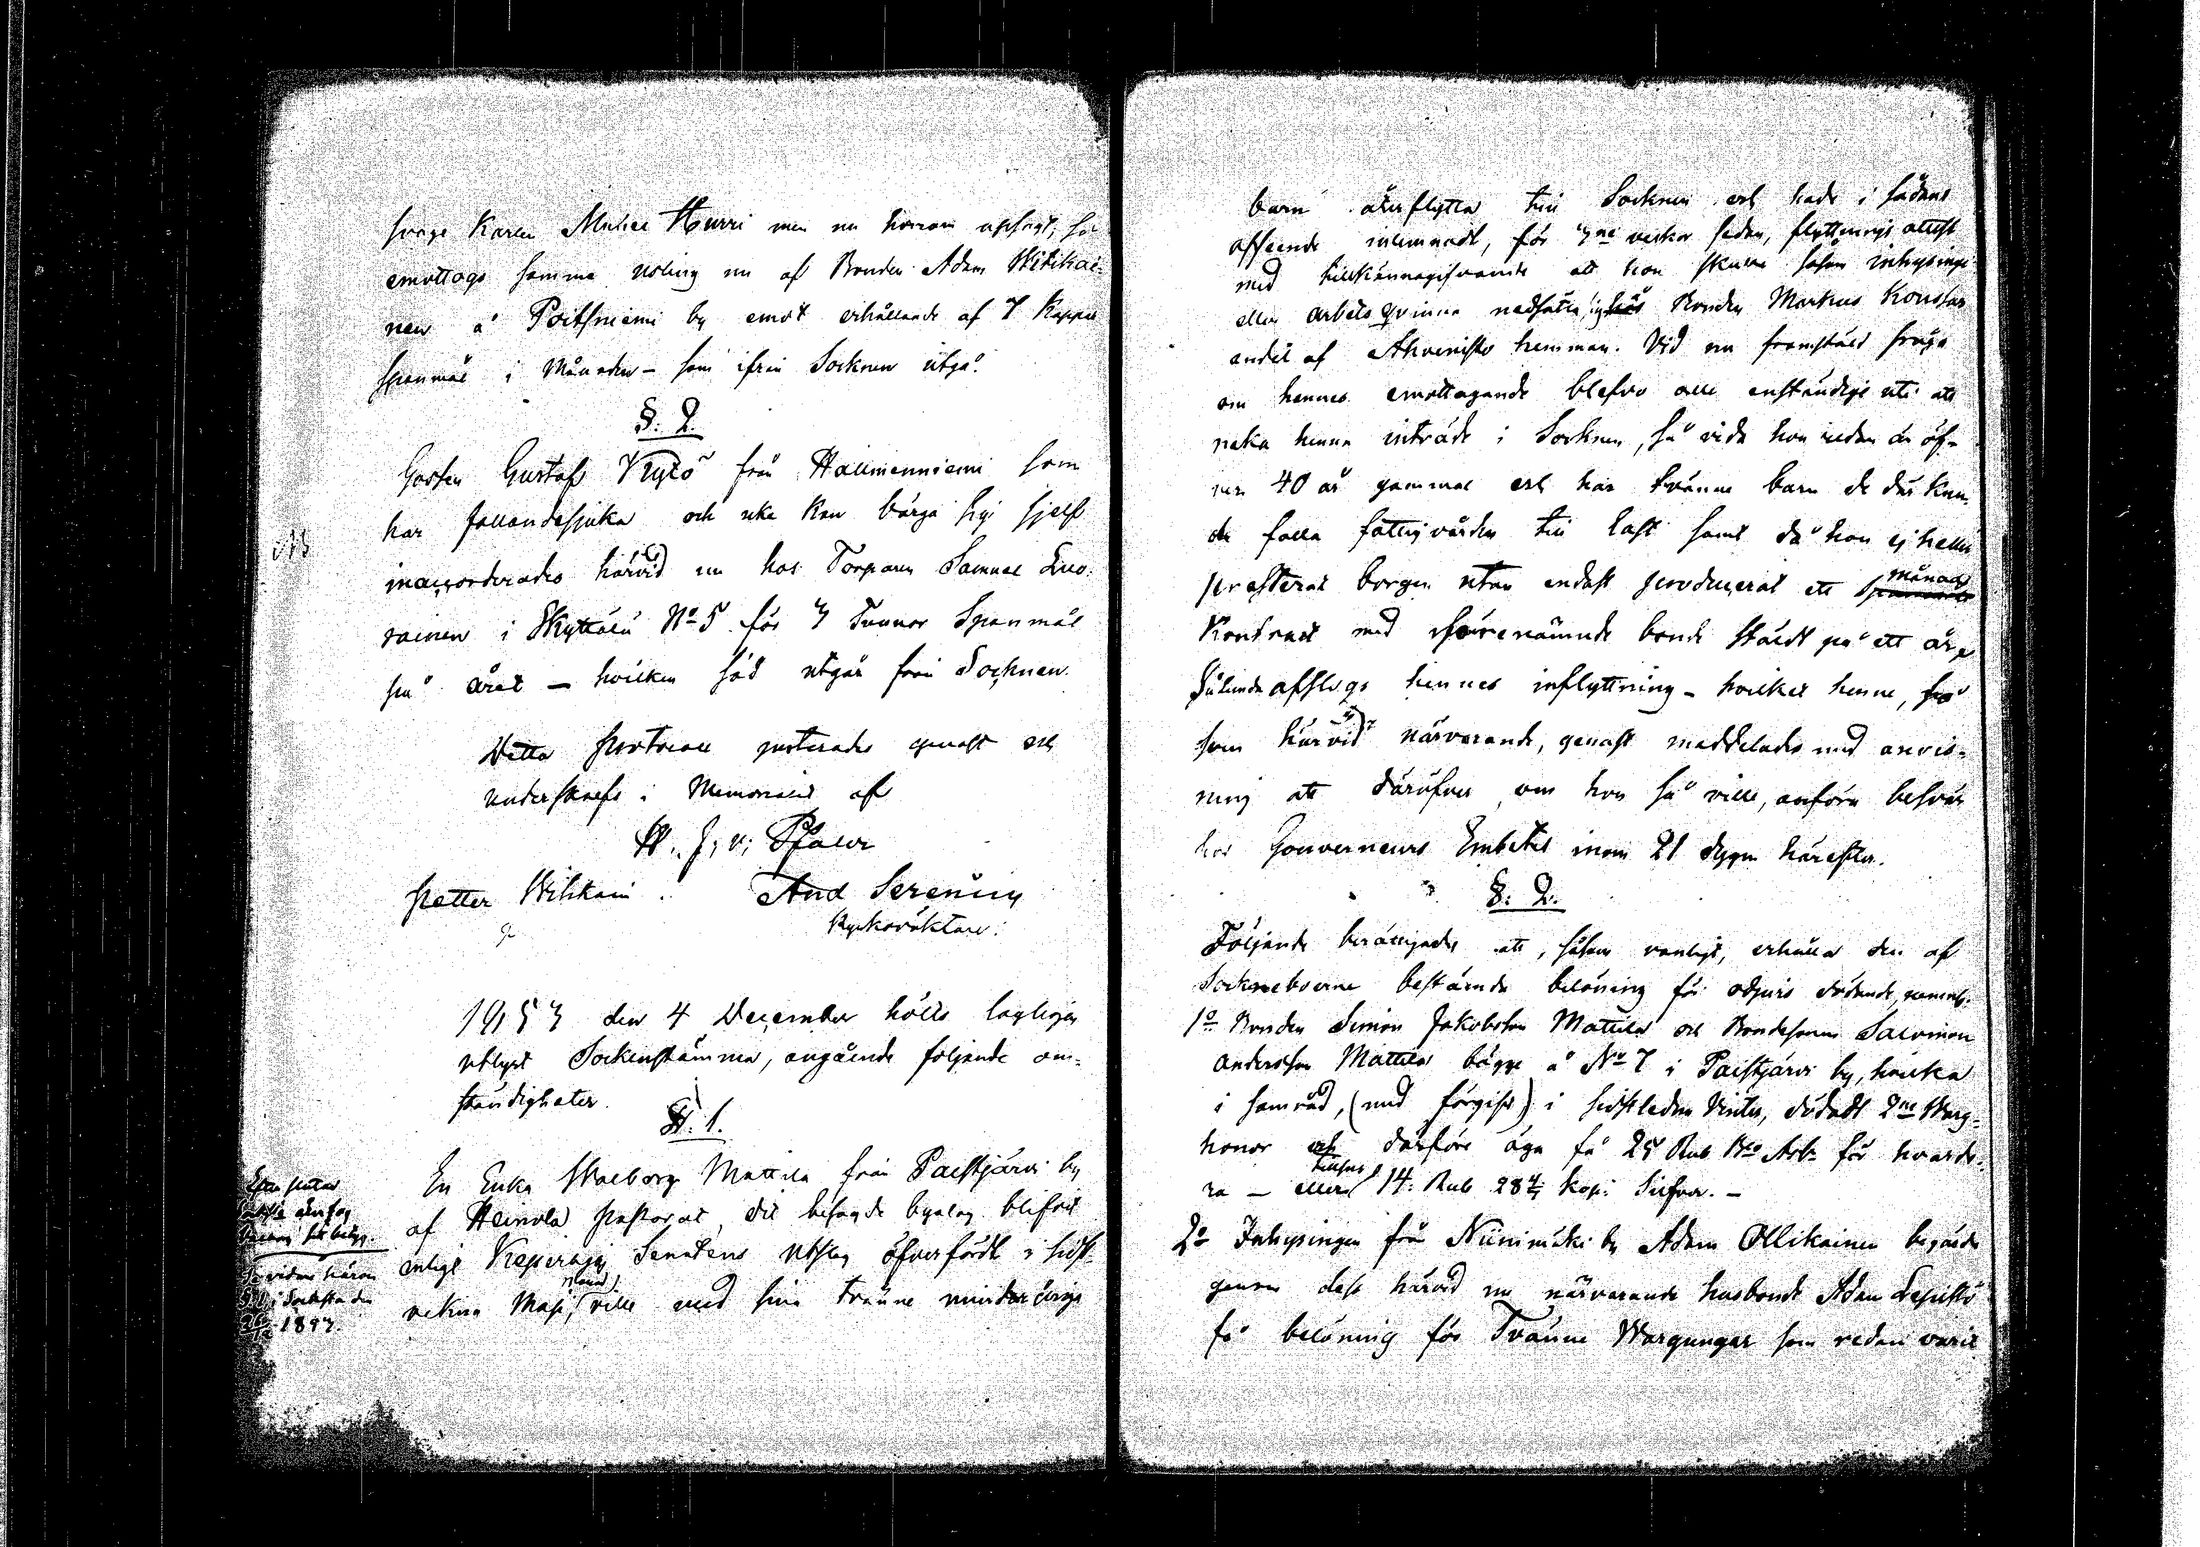 Karen Michel Hurri men nu honom upsagt, så
emottogs samma nu af Bonden Adam Witikai-
nen å Poitsniemi by emot erhållande af 7 Kappar
spanmål i Månaden – som ifrån Socknen utgå.
§. 2.
Gossen Gustaf Kytö från Hallmenniemi som
har fallandesjuka och icke kan bärga sig sjelf
NB
inaccorderades härvid nu hos Torparen Samuel Suo-
rainen i No 5 för 3 Tunnor Spanmål
på året – hvilken säd utgår från Socknen.
Detta protocoll justerades genast och
underskrefs i Memorialet af
H. J. v. Pfaler
Petter Wilskain
And Serenius
Kyrkoväktare.
1853 den 4 December hölls lagligen
utlyst Sockenstämma, angående följande om-
ständigheter.
§. 1.
En Enka Walborg Mattila från Paistjärvi by
af Heinola pastorat, dit besagde byalag blifvit
enligt Kejserliga Senatens utslag öfverfördt i sidst-
vekne Maji månad, ville med sina tvänne minderåriga
1893.
barn återflytta till Socknen och hade i sådant
afseende inlemnadt, för 3ne veckor sedan, flyttnings attest
med tillkännagifvande att hon skulle såsom inhysinge
eller arbets qvinna nedsätta sig hos Bonden Markus Konstas
andel af Ahvenisto hemman. Vid nu framstäld fråga
om hennes emottagande blefvo alle enständige uti att
neka henne inträde i Socknen, så vida hon redan är öf-
ver 40 år gammal och har tvänne barn de där kun-
de falla fattigvården till last samt då hon ej heller
presterat borgen utan endast producerat ett månads
Kontract med förenämnde bonde stäldt på ett år.
Sålunda afslogs hennes inflyttning – hvilket henne,
som härvid närvarande, genast meddelades med anvis-
ning att däröfver, om hon så ville, anföra besvär
hos Gouverneurs Embetet inom 21 dygn härefter.
§. 2.
Följande berättigades att, såsom vanligt, erhålla den af
Sockneboerne bestämda belöning för odjurs dödande, nemnl.
1o Bonden Simon Jakobsson Mattila och Bondesonen Salomon
Andersson Mattila bägge å No 7 i Paistjärvi by, hvilka
i samråd, (med förgift) i sidstleden Vinter, dödadt 2ne Warg-
honor och därföre äga få 25 Rub Bco Ass. för hvarde-
ra – eller 14. Rub 28 4/7 kop. Silfver. –
2o Inhysingen från Niinimäki by Adam Ollikainen begärde
genom dess härvid nu närvarande husbonde Adam Lepistö
få belöning för Tvänne Wargungar som redan varit